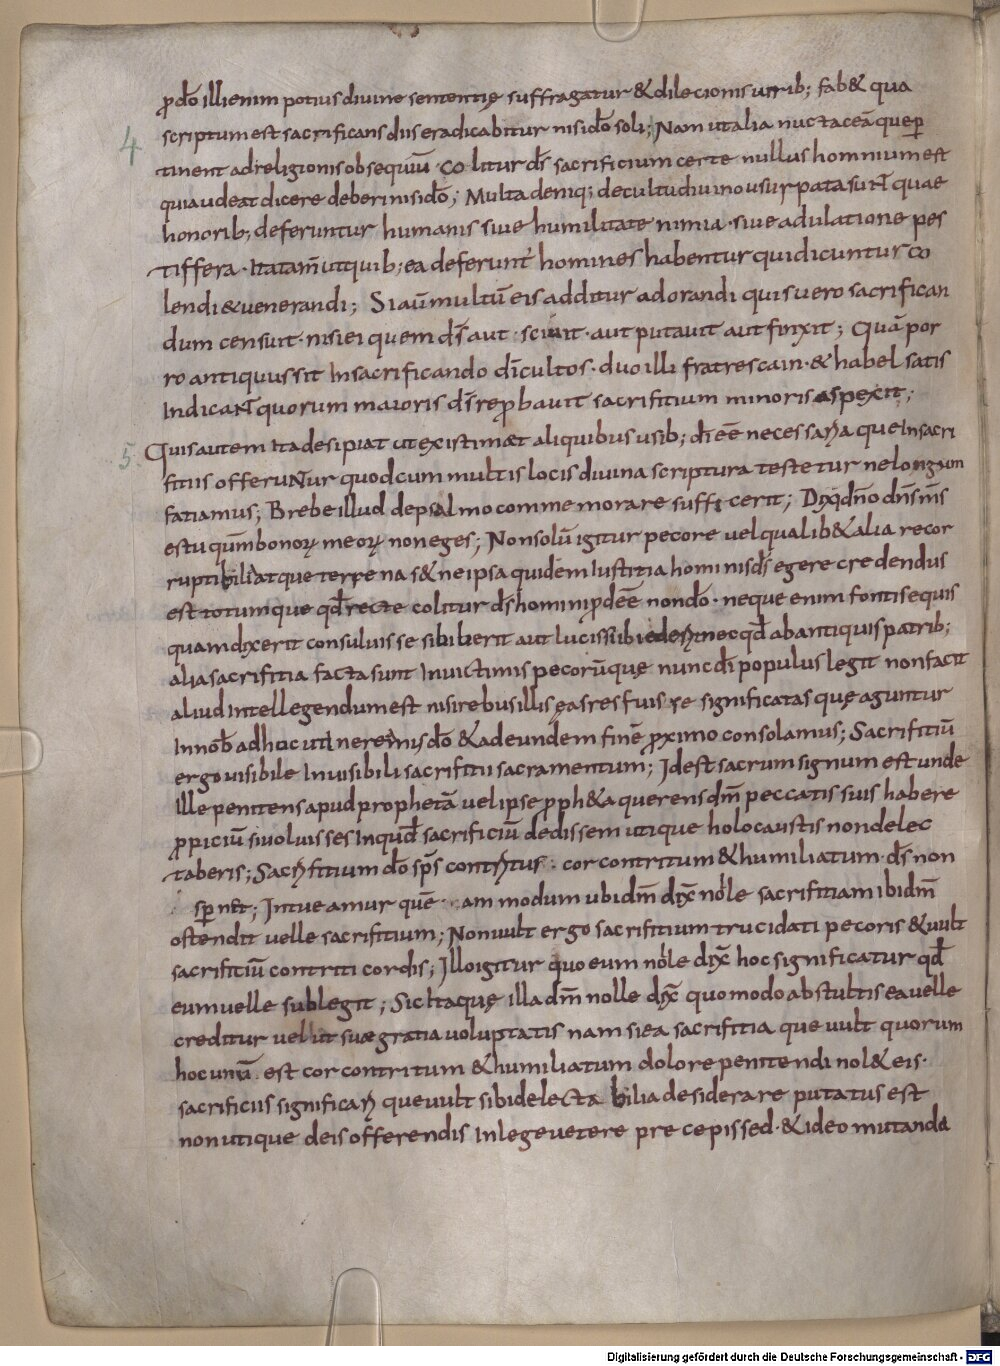 p̱ do illi enim potius divine sententię suffragatur & dilecionis urrib; fab& qua
4
scriptum est sacrificans diis eradicabitur nisi do soli; Nam ut alia nuc taceā que per
tinent ad religionis obsequiū · colitur ds sacrificium certe nullus hominum est
qui audeat dicere deberi nisi do; Multa deniq; de cultu divino usurpata sunt quae
honorib; deferuntur humanis sive humilitate nimia · sive adulatione pes
tiffera · Ita tam ut quib; ea deferunt homines habentur qui dicuntur co
lendi & venerandi; Si aū multū eis additur adorandi quis vero sacrifican
dum censuit · nisi ei quem dm aut sciuit · aut putauit aut finxit; Quā por
ro antiquus sit In sacrificando di cultos · duo illi fratres cain · & habel satis
Indicant quorum maioris ds reprobauit sacrifitium minoris aspexit;
5
Quis autem Ita desipiat ut existimet aliquibus usib; di eē necessaria que In sacri
fitiis offeruntur quod cum multis locis divina scriptura testetur ne longum
fatiamus; Brebe illud de psalmo commemorare suffecerit; Dixi dno dns ms
es tu qm bonoꝝ meoꝝ non eges; Non solū igitur pecore vel qualib& alia re cor
ruptibili atque terrena s& ne ipsa quidem Iustitia hominis ds egere credendus
est totumque qd recte colitur ds homini pdeē non do · neque enim fonti se quis
quam dixerit consuluisse si biberit aut luci si viderit nec qd ab antiquis patrib;
alia sacrifitia facta sunt In victimis pecorū quę nunc di populus legit non facit
aliud intellegendum est nisi rebus illis eas res fuisse significatas quę aguntur
In nob ad hoc uti nereamis do & ad eundem finē pximo consolamus; Sacrifitiū
ergo visibile Invisibili sacrifitii sacramentum; Id est sacrum signum est unde
ille penitens apud prophetā vel ipse pph&a querens dm peccatis suis habere
ppiciū si voluisses Inquid sacrificiū dedissem utique holocaustis non delec
taberis; Sacrifitium do sps contritus · cor contritum & humiliatum · ds non
spernet; Intueamur quē am modum ubi dm dix nolle sacrifitiam ibi dm
ostendit velle sacrifitium; Non vult ergo sacrifitium trucidati pecoris & vult
sacrifitiū contriti cordis; Illo igitur quo eum nolle dix hoc significatur qd
eum velle sublegit; Sic Itaquę illa dm nolle dix quomodo ab stultis ea velle
creditur vel ut suae gratia voluptatis nam si ea sacrifitia que vult quorum
hoc unū est cor contritum & humiliatum dolore penitendi noll& eis ·
sacrificiis significari que vult sibi delectabilia desiderare putatus est
non utique de is offerendis In lege vetere precepisset · & ideo mutanda
Digitalisierung gefördert durch die Deutsche Forschungsgemeinschaft - DFG